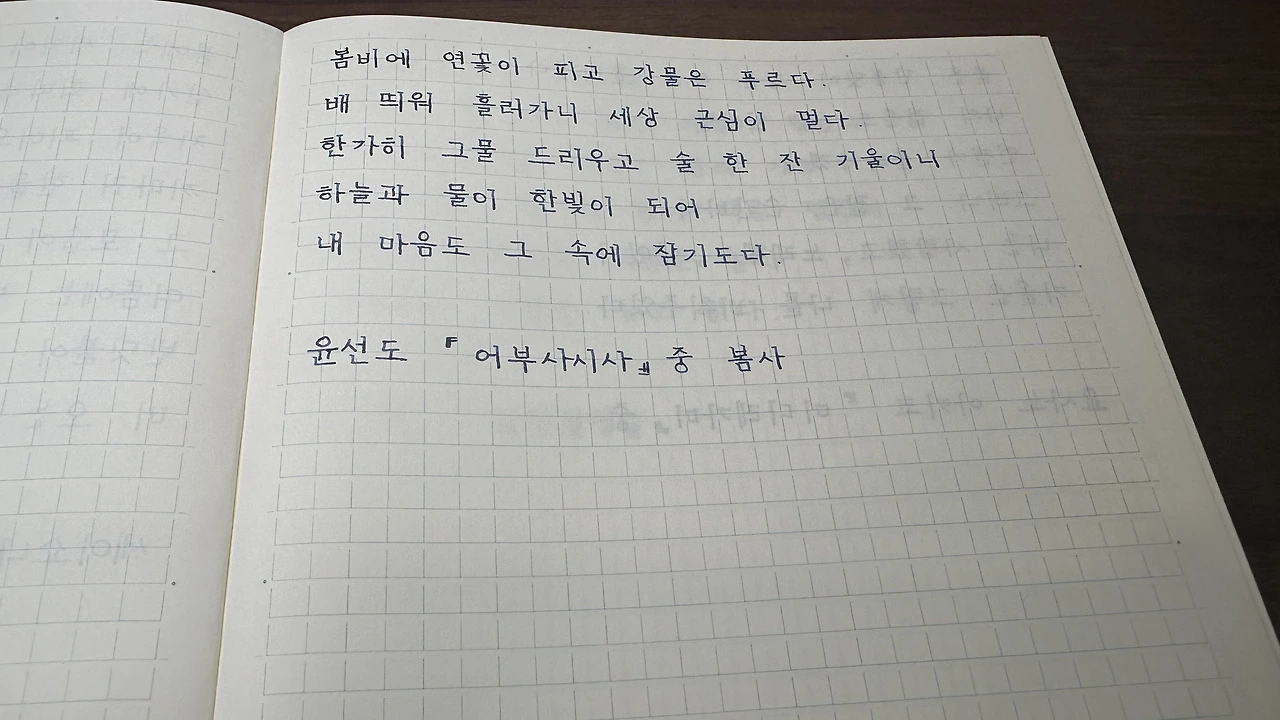 봄비에 연꽃이 피고 강물은 푸르다.
배 띄워 흘러가니 세상 근심이 멀다.
한가히 그물 드리우고 술 한 잔 기울이니
하늘과 물이 한빛이 되어
내 마음도 그 속에 잠기도다.
윤선도 『어부사시사』 중 봄사